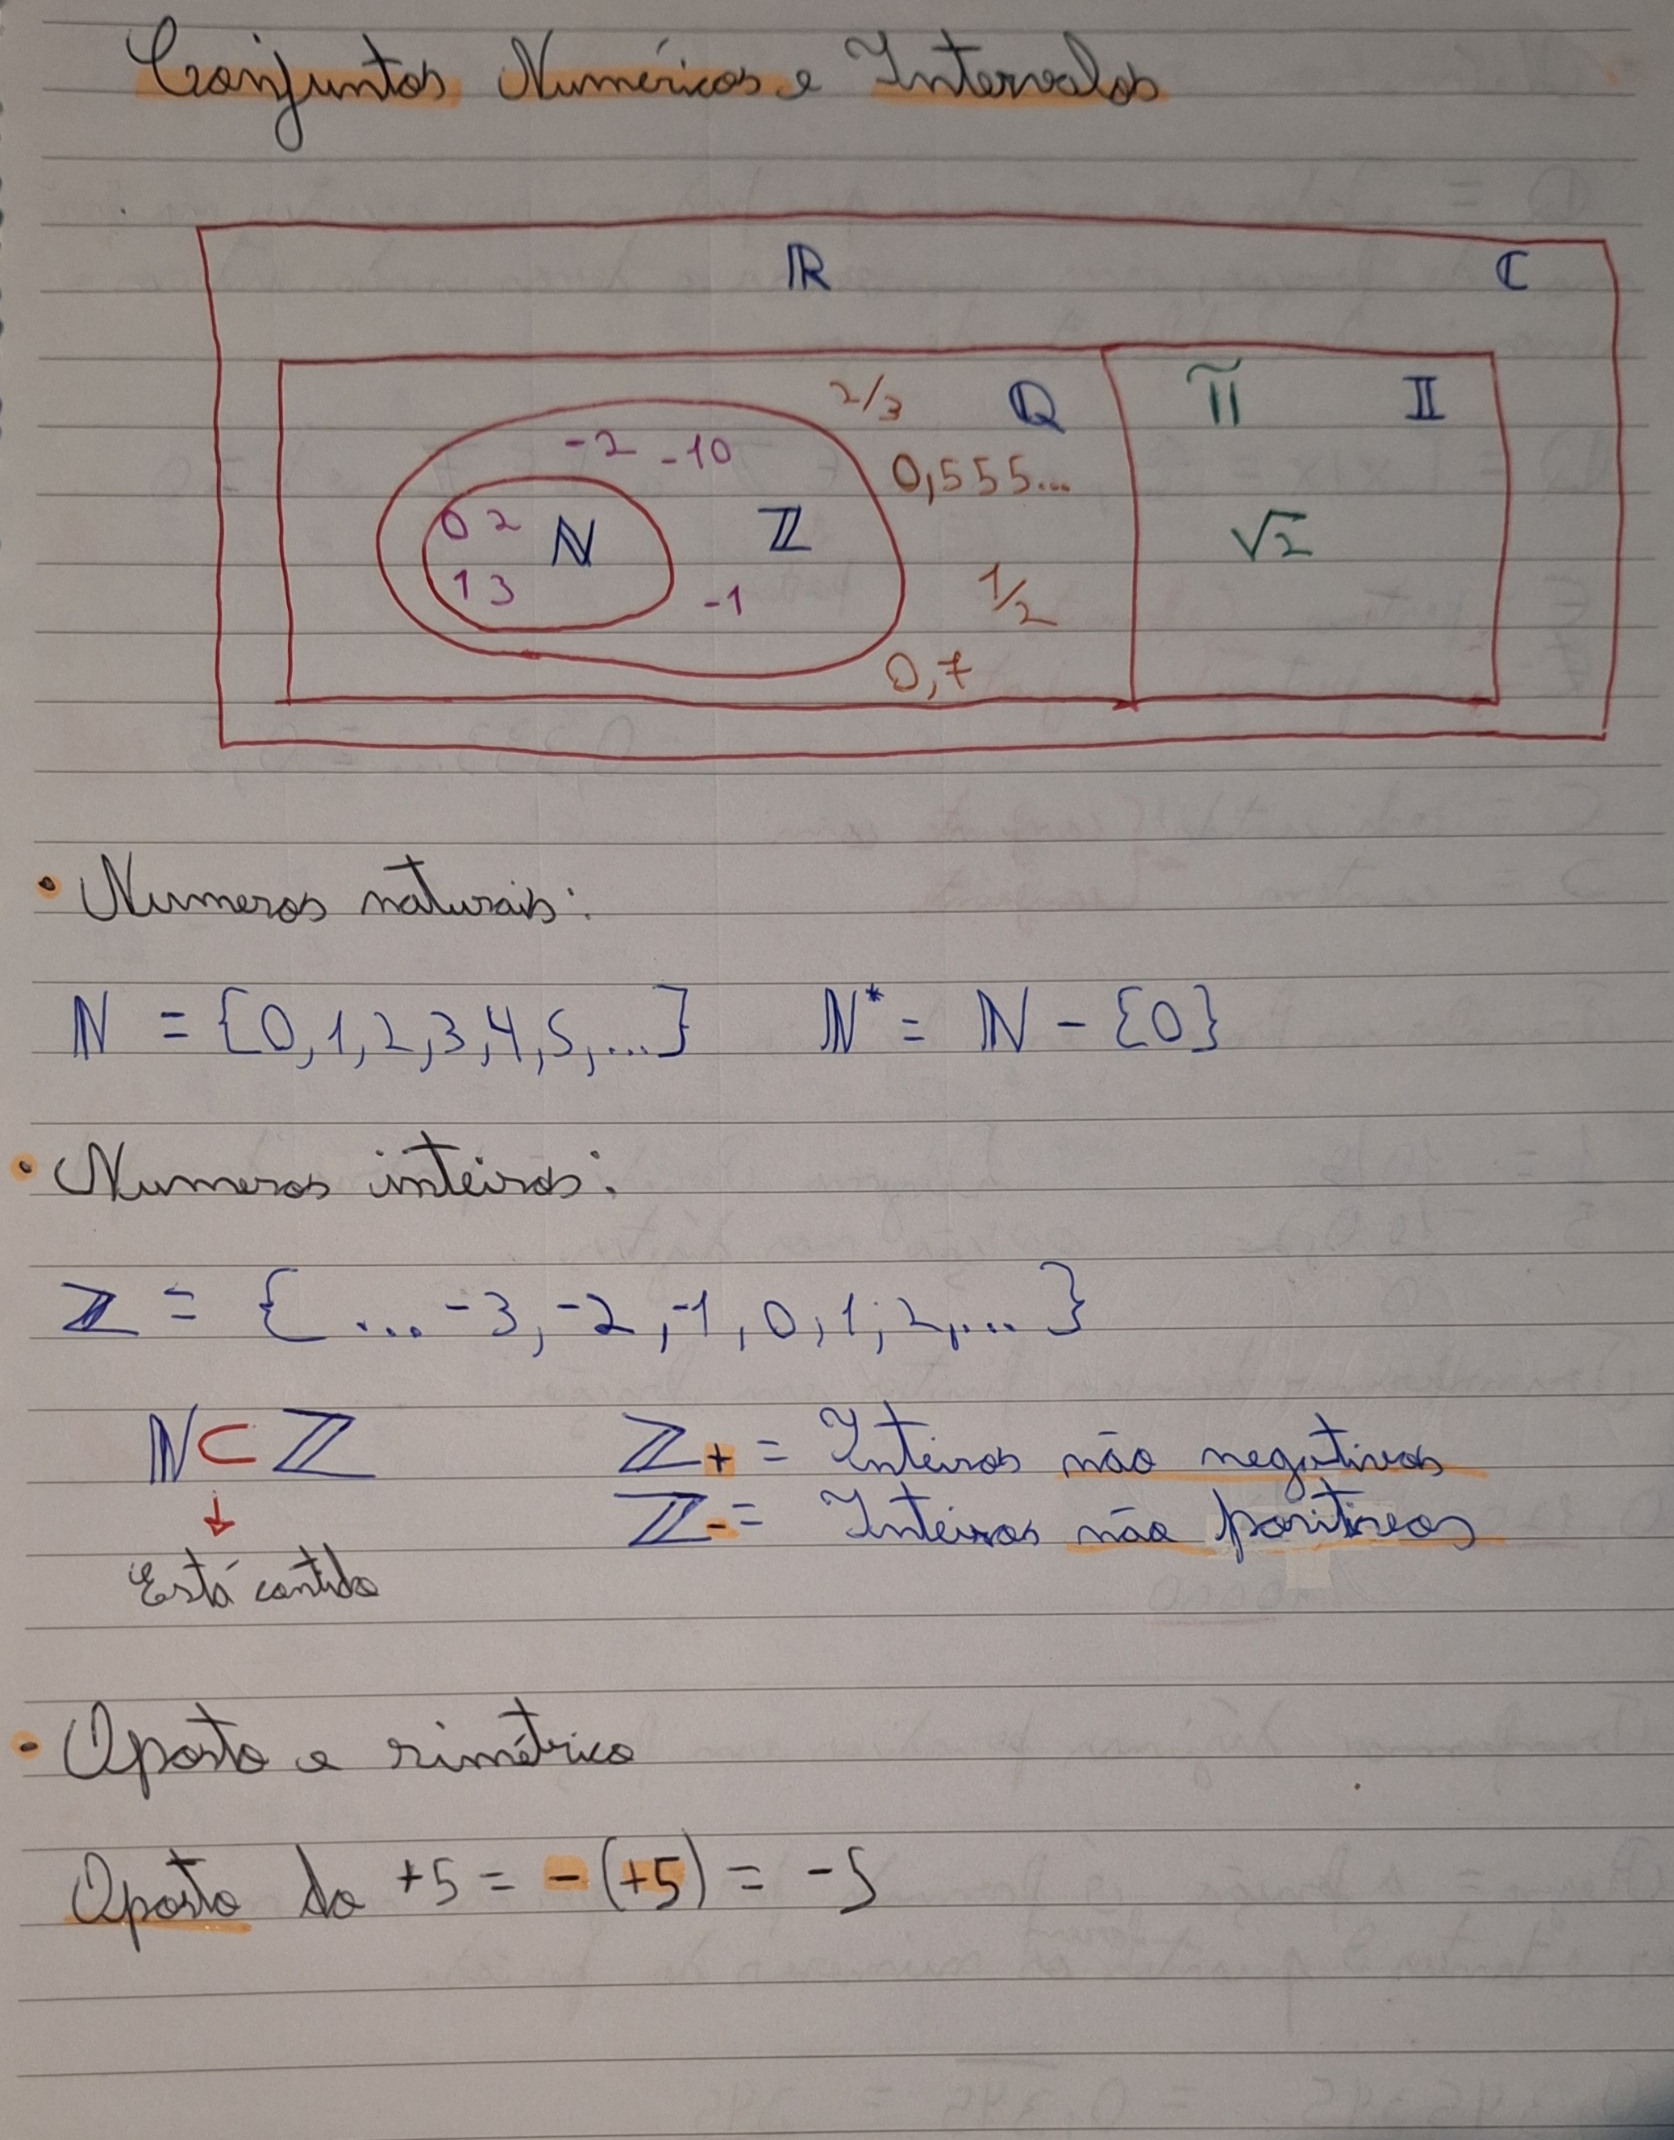 Conjuntos Numéricos e Intervalos
ℝ ℂ
2/3 ℚ π 𝕀
-2 -10
0,555...
0 2 ℕ ℤ √2
1 3 -1 1/2
0,7
• Numeros naturais:
ℕ = {0,1,2,3,4,5,...} ℕ* = ℕ - {0}
• Numeros inteiros:
ℤ = {... -3, -2, -1, 0, 1, 2,...}
ℕ ⊂ ℤ ℤ+ = Inteiros não negativos
↓ ℤ- = Inteiros não positivos
Está contido
• Oposto e simétrico
Oposto do +5 = -(+5) = -5